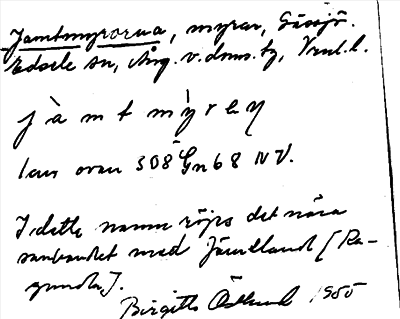 Jämtmyrorna, myrar, Gåssjö.
Edsele sn, Ång. v. doms. tg, Vnl. l.
j à m t m ỳ r e ɳ
läns ovan 308 Gn 68 NV.
I detta namn röjes det nära
sambandet med Jämtland [Ra-
gunda].
Birgitta Östlund 1955